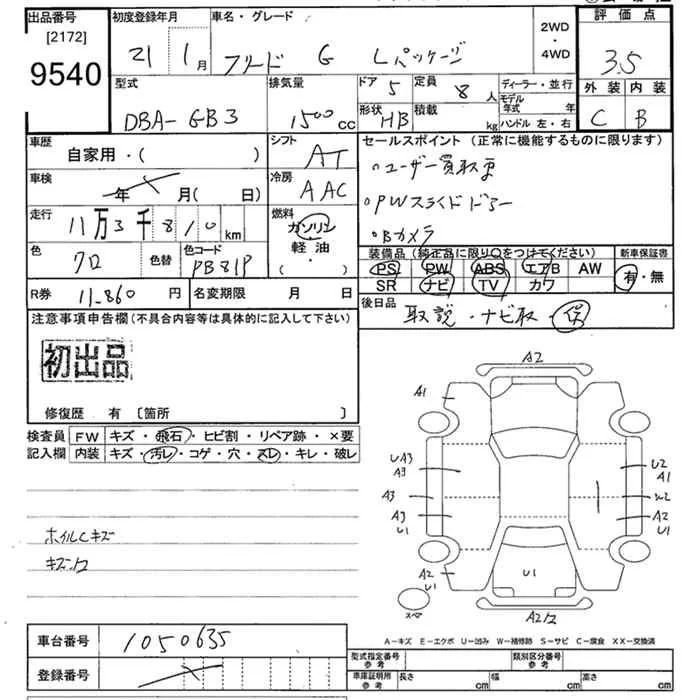 出品番号 初度登録年月 車名・グレード 2WD・4WD 評価点
[2172] 21 1月 フリード G Lパッケージ 3.5
9540
型式 排気量 ドア 5 定員 8人 ディーラー・並行 外装 内装
DBA-GB3 1500cc 形状 HB 積載 kg モデル年式 年 C B
ハンドル 左・右
車歴 シフト セールスポイント (正常に機能するものに限ります)
自家用・( ) AT
車検 冷房 ・ユーザー買取車
年 月(日) AAC
・PWスライドドアー
走行 11万3千810km 燃料 ガソリン ・Bカメラ
色 クロ 色替 色コード PB81P 軽油 ・( )
装備品 (純正品に限り〇をつけてください) 新車保証書
PS PW ABS エアB AW 有・無
SR ナビ TV カワ
R券 11,860円 名変期限 月 日
後日品 取説・ナビ取・保
注意事項申告欄(不具合内容等は具体的に記入して下さい)
初出品
修復歴 有 [箇所 ]
検査員 FW キズ・飛石・ヒビ割・リペア跡・×要
記入欄 内装 キズ・汚レ・コゲ・穴・スレ・キレ・破レ
A2
A1
UA3 U2
A3 A1
A3 W2
A3 A2
U1 U1
ホイルCキズ
A2 U1
U1
スペア A2
車台番号 1050635
登録番号
A-キズ E-エクボ U-凹み W-補修跡 S-サビ C-腐食 XX-交換済
型式指定番号 参考 類別区分番号 参考
車庫証明用 参考 長さ cm 幅 cm 高さ cm